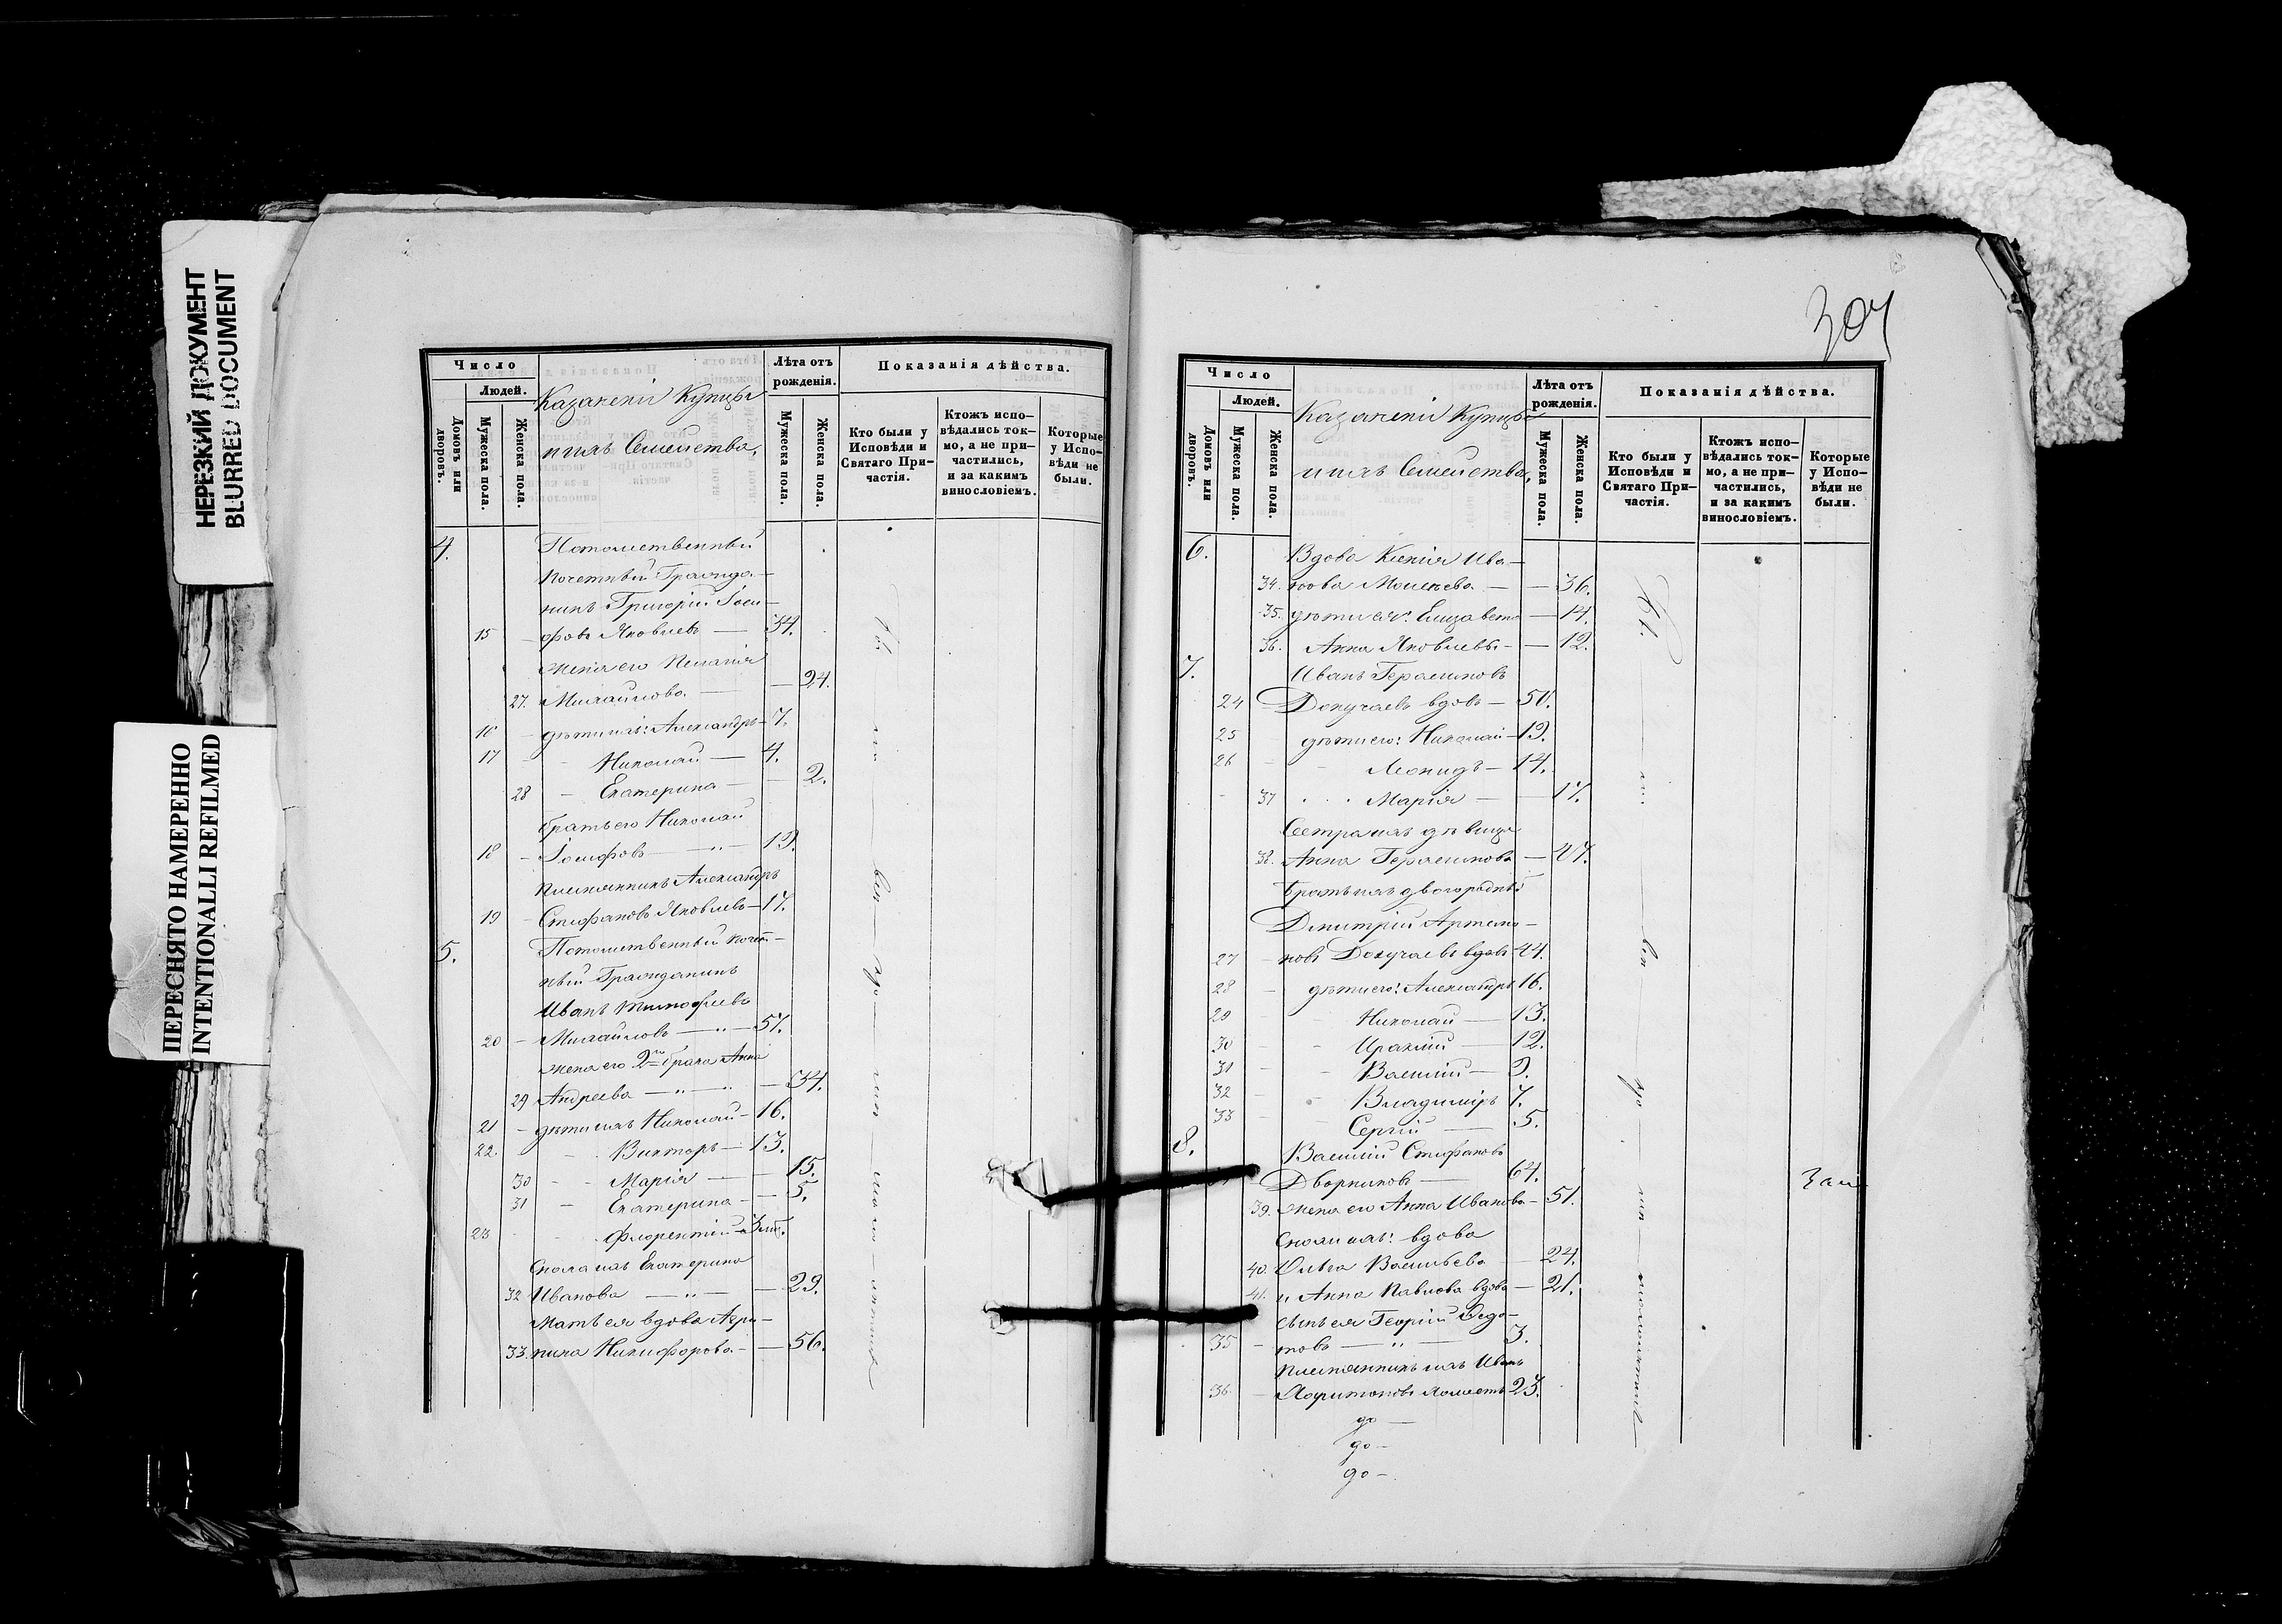 НЕРЕЗКИЙ ДОКУМЕНТ
BLURRED DOCUMENT
ПЕРЕСНЯТО НАМЕРЕННО
INTENTIONALLI REFILMED
Число
Людей.
Домовъ или дворовъ.
Мужеска пола.
Женска пола.
Казанскіи Купцы
и ихъ Семейства,
Лѣта отъ рожденія.
Мужеска пола.
Женска пола.
Показанія дѣйства.
Кто были у Исповѣди и Святаго Причастія.
Ктожъ исповѣдались токмо, а не причастились, и за какимъ винословіемъ.
Которые у Исповѣди не были.
4. Потомственный
почетный Гражда-
нинъ Григорій Іоси-
15 - фовъ Яковлевъ — 34.
жена его Пелагія
27. Михайлова — — 24.
16 - дѣти ихъ: Александръ — 7.
17 - - Николай — 4.
28 - Екатерина — — 2.
братъ его Николай
18 - Іосифовъ — „ — 19.
племянникъ Александръ
19 - Стефановъ Яковлевъ — 17.
5. Потомственный почет-
ный Гражданинъ
Иванъ Тимофеевъ
20 - Михайловъ — „ — 57.
жена его 2го брака Анна
29 Андреева — „ — „ — 34.
21 - дѣти ихъ Николай — 16.
22. - Викторъ — 13.
30 - - Марія — — 15.
31 - Екатерина — — 5.
23 - Флорентій — 3 мѣс.
Сноха ихъ Екатерина
32 Иванова — „ — — 29.
Мать ея вдова Агри-
33. пина Никифорова — — 56.
Бы ли вси до
304
Число
Людей.
Домовъ или дворовъ.
Мужеска пола.
Женска пола.
Казанскіи Купцы
и ихъ Семейства,
Лѣта отъ рожденія.
Мужеска пола.
Женска пола.
Показанія дѣйства.
Кто были у Исповѣди и Святаго Причастія.
Ктожъ исповѣдались токмо, а не причастились, и за какимъ винословіемъ.
Которые у Исповѣди не были.
6. Вдова Ксенія Ива-
34. нова — — 36.
35. дѣти ея: Елизавета — 14.
36. Анна Яковлевы — — 12.
7. Иванъ Герасимовъ
24 Докучаевъ вдовъ — 50.
25 дѣти его: Николай — 19.
26 - - Леонидъ — 14.
37 - - Марія — — 17.
Сестра ихъ дѣвица
38. Анна Герасимова — 47.
Братъ ихъ двоюродный
Димитрій Артемо-
27 - новъ Докучаевъ вдовъ 44.
28 - дѣти его: Александръ 16.
29 - - Николай — 13.
30 - - Ираклій — 12.
31 - Василій — 9.
32 - Владиміръ 7.
33 - - Сергій — 5.
8. Василій Стефановъ
Дворниковъ — 64.
39. жена его Анна Иванова — 51.
Снохи ихъ: вдова
40. Ольга Васильева — 24.
41. и Анна Павлова вдова — 21.
Сынъ ея Георгій Ѳедо-
35 - товъ — „ — 3.
племянникъ ихъ Иванъ
36. - Харитоновъ холостъ 23.
Бы ли вси до
до —
до —
до —